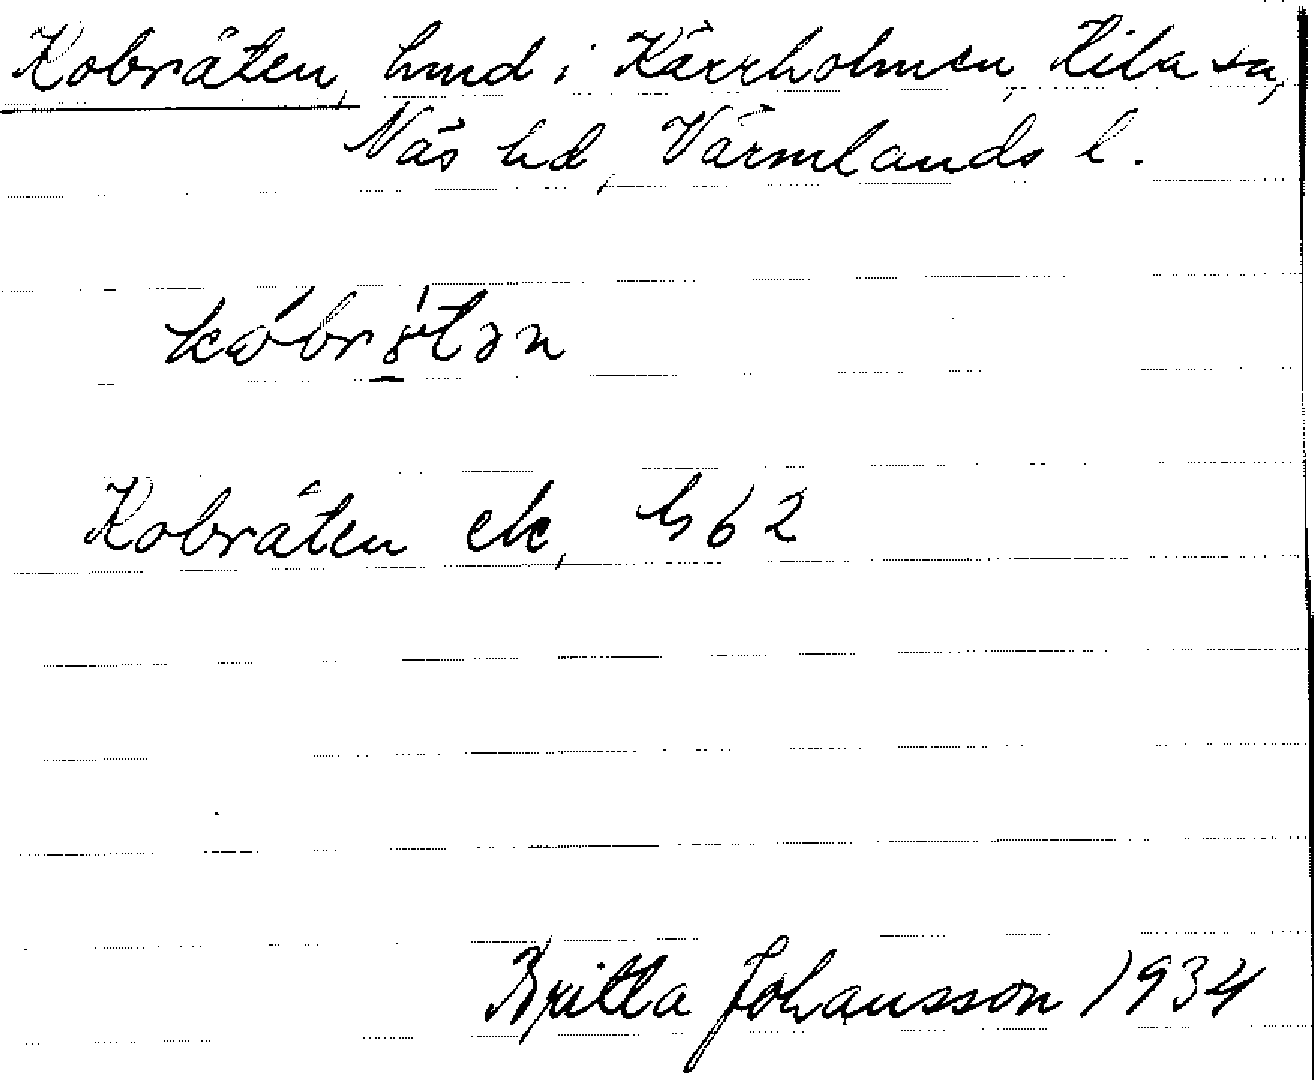 Kobråten, hmd i Kärrholmen, Kila sn,
Näs hd, Värmlands l.
Kobråten ek, b 62
Britta Johansson 1934